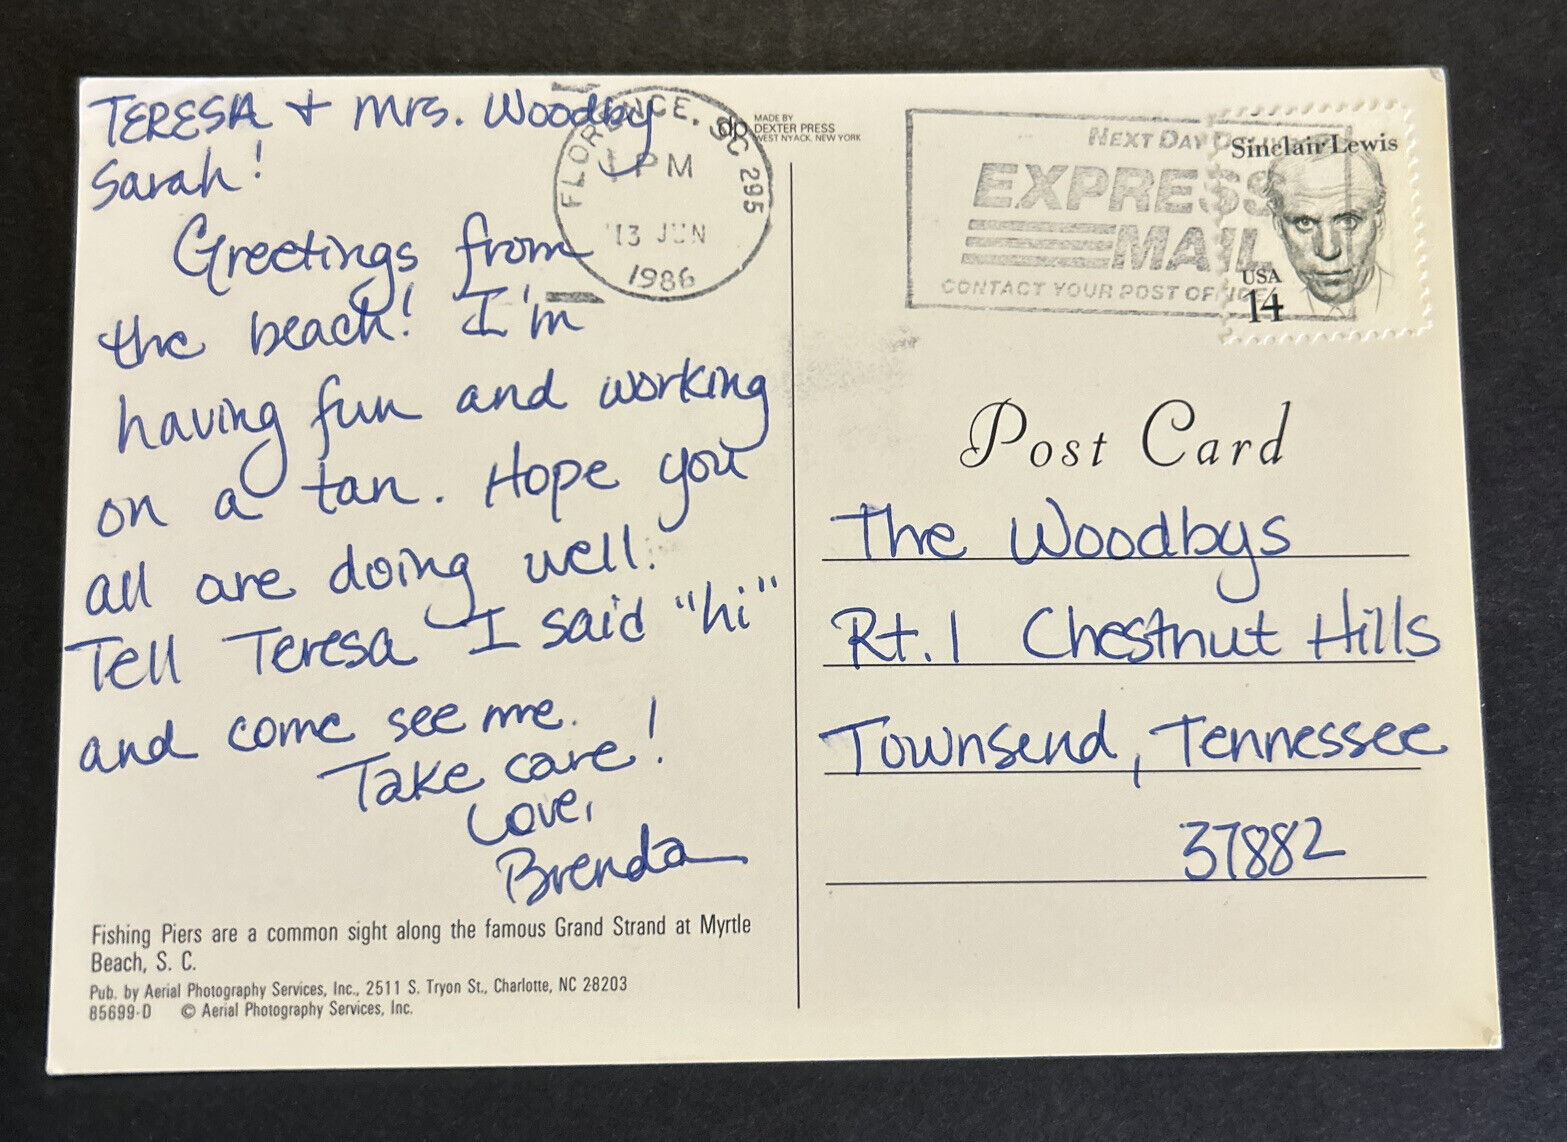 TERESA + Mrs. Woodby
Sarah!
Greetings from
the beach! I'm
having fun and working
on a tan. Hope you
all are doing well.
Tell Teresa I said "hi"
and come see me.
Take care!
Love,
Brenda
Fishing Piers are a common sight along the famous Grand Strand at Myrtle
Beach, S. C.
Pub. by Aerial Photography Services, Inc., 2511 S. Tryon St., Charlotte, NC 28203
85699-D © Aerial Photography Services, Inc.
FLORENCE, SC 295
PM
13 JUN
1986
dp
MADE BY
DEXTER PRESS
WEST NYACK, NEW YORK
NEXT DAY
EXPRESS
MAIL
CONTACT YOUR POST OFFICE
Sinclair Lewis
USA
14
Post Card
The Woodbys
Rt. 1 Chestnut Hills
Townsend, Tennessee
37882